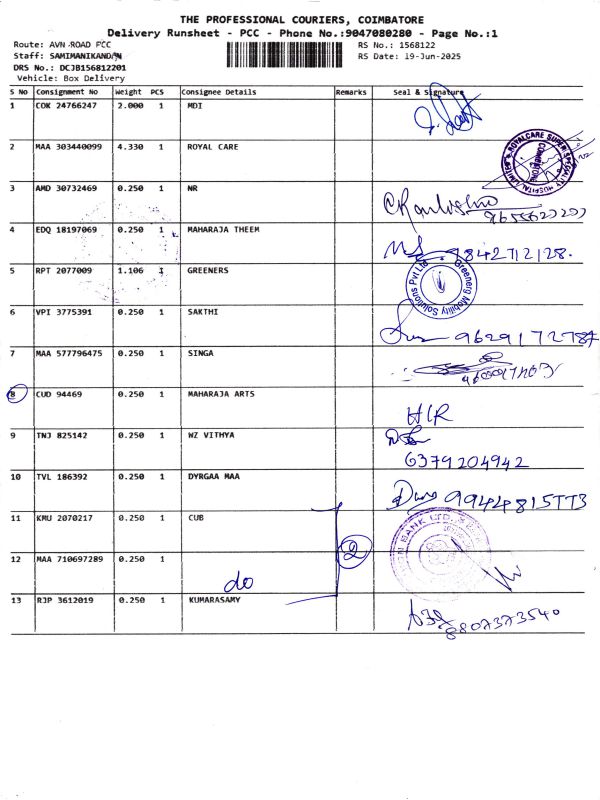 THE PROFESSIONAL COURIERS, COIMBATORE
Delivery Runsheet - PCC - Phone No.:9047080280 - Page No.:1
Route: AVN ROAD PCC
RS No.: 1568122
Staff: SAMIMANIKANDAN
RS Date: 19-Jun-2025
DRS No.: DCJB156812201
Vehicle: Box Delivery
S No Consignment No Weight PCS Consignee Details Remarks Seal & Signature
1 COK 24766247 2.000 1 MDI
2 MAA 303440099 4.330 1 ROYAL CARE
ROYALCARE SUPER SPECIALITY HOSPITAL LIMITED
COIMBATORE
3 AMD 30732469 0.250 1 NR
4 EDQ 18197069 0.250 1 MAHARAJA THEEM
9842712128.
5 RPT 2077009 1.106 1 GREENERS
Greenerg Mobility Solutions Pvt Ltd
6 VPI 3775391 0.250 1 SAKTHI
9629172787
7 MAA 577796475 0.250 1 SINGA
8 CUD 94469 0.250 1 MAHARAJA ARTS
HLR
9 TNJ 825142 0.250 1 WZ VITHYA
6379204942
10 TVL 186392 0.250 1 DYRGAA MAA
9944815773
11 KMU 2070217 0.250 1 CUB
BANK LTD.
12 MAA 710697289 0.250 1 do
2
13 RJP 3612019 0.250 1 KUMARASAMY
8807373540